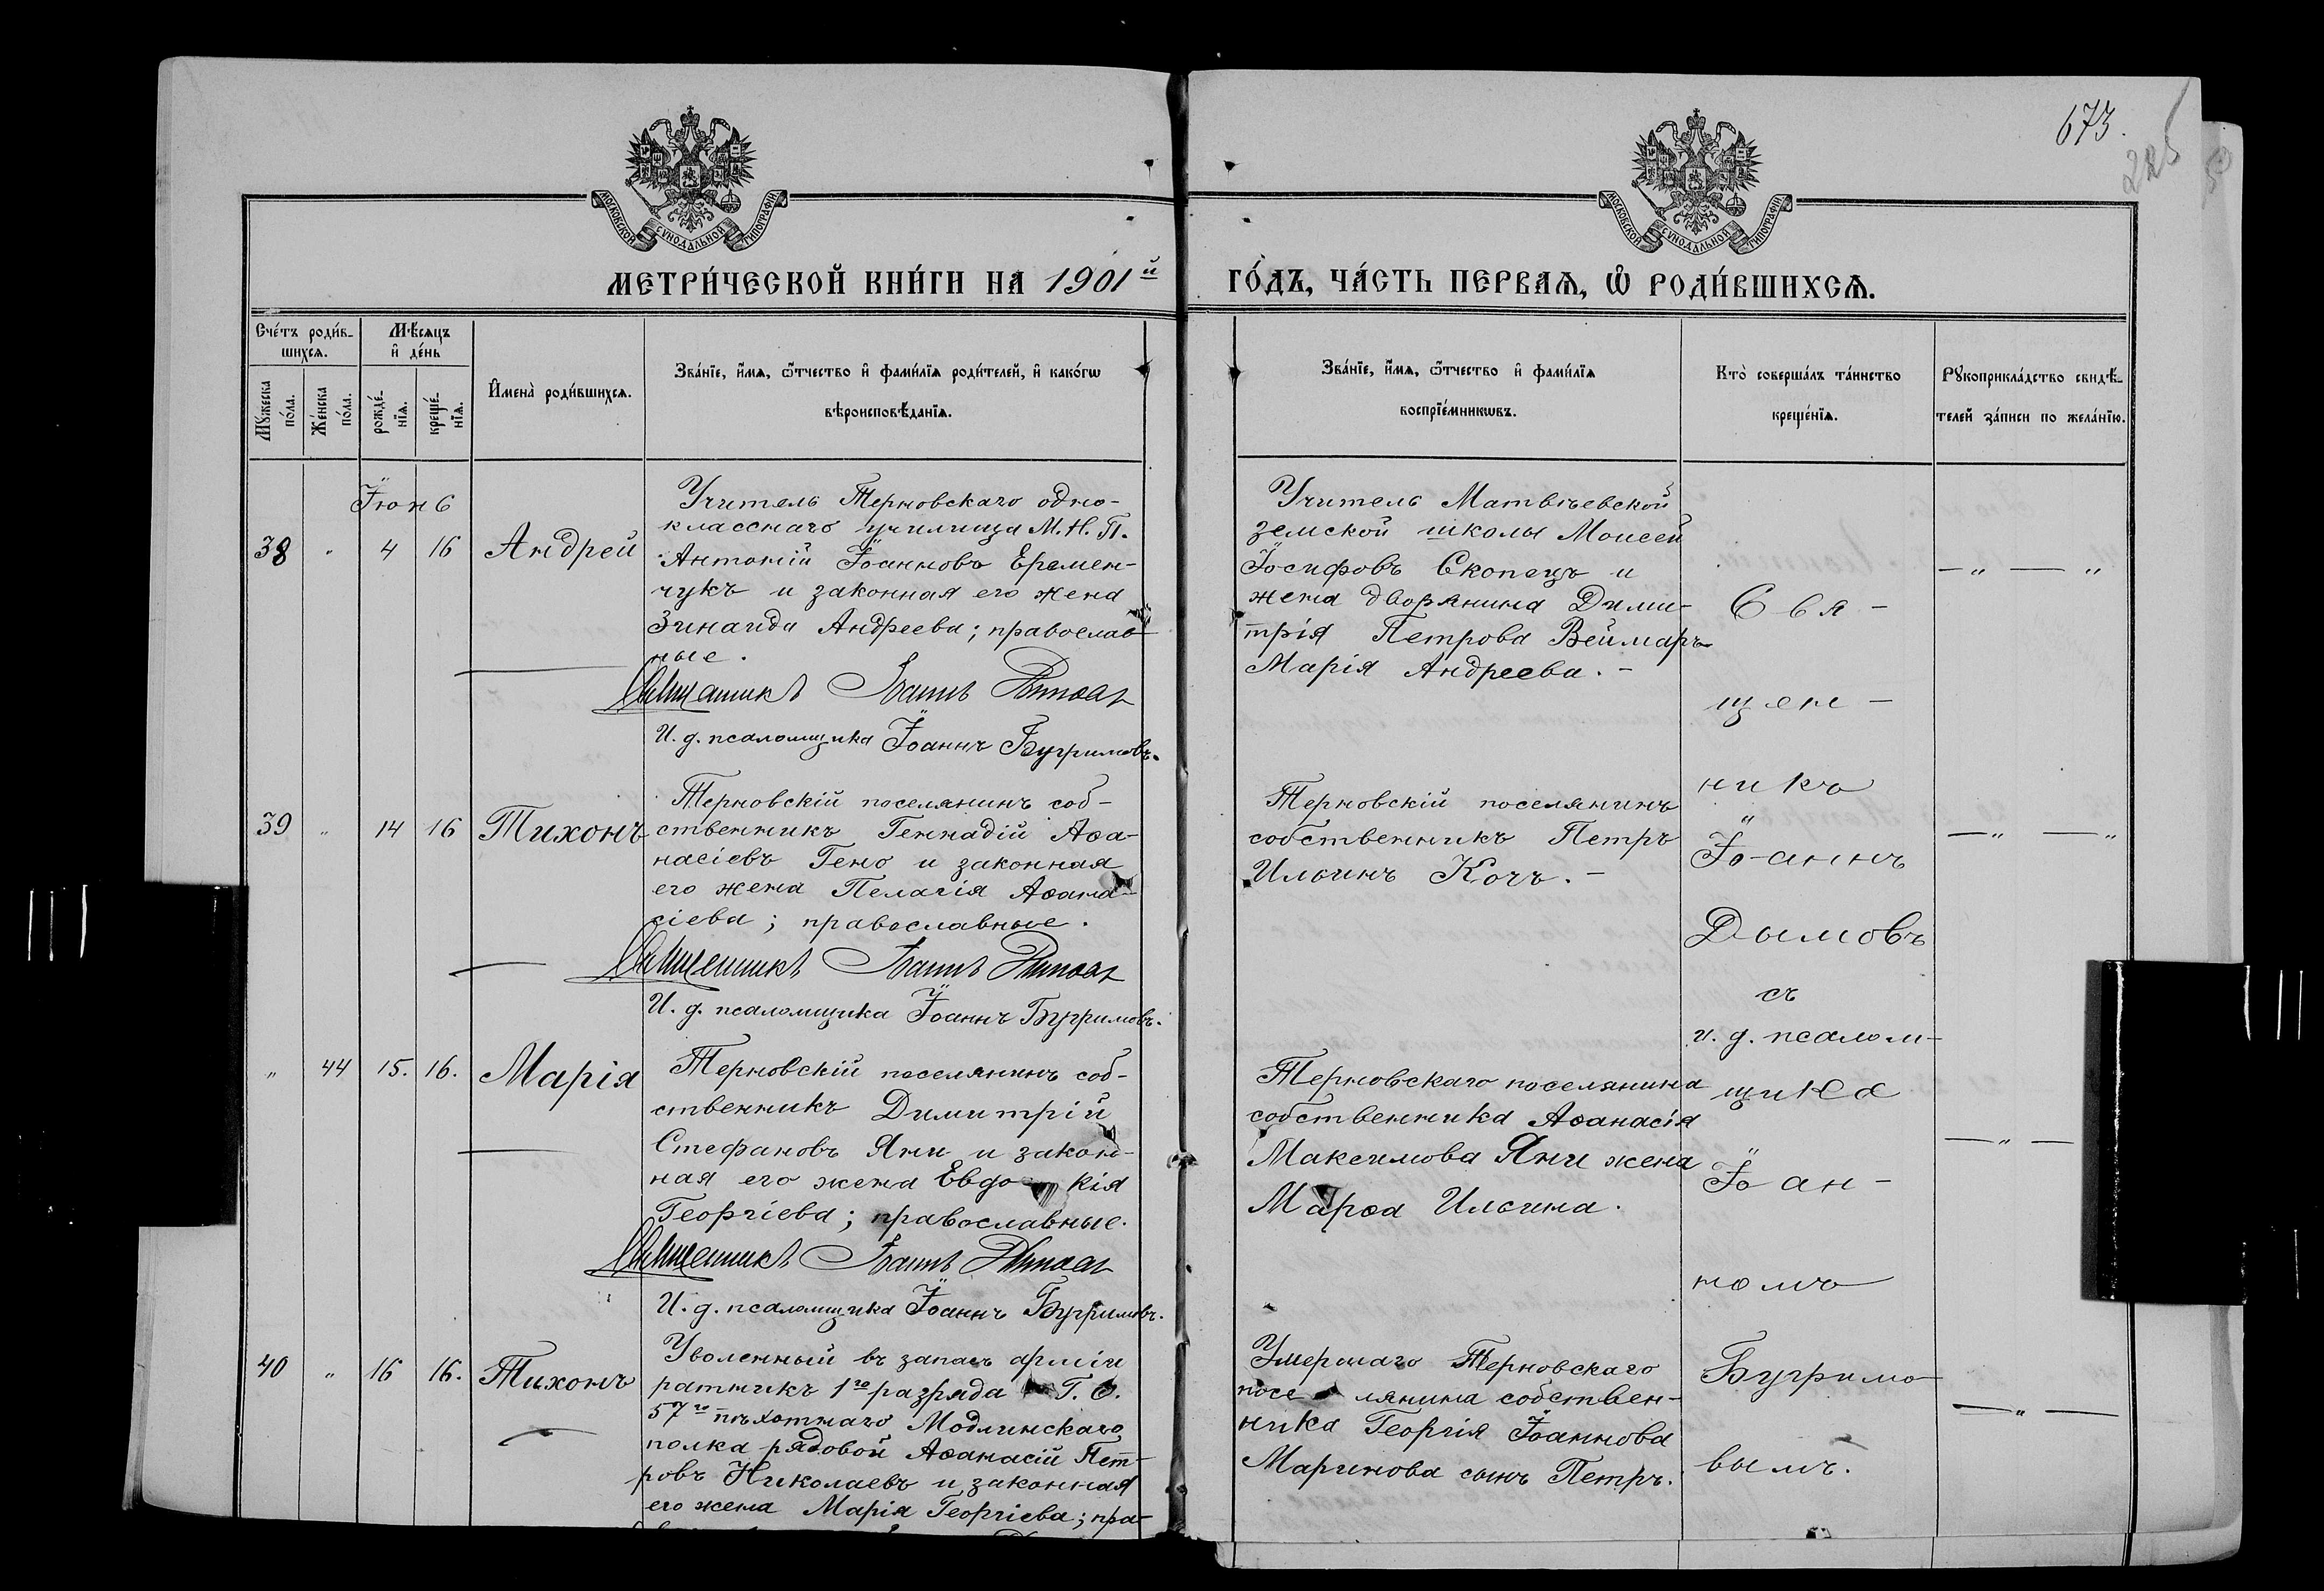 673.
285
МОСКОВСКОЙ СѴНОДАЛЬНОЙ ТИПОГРАФІИ
МОСКОВСКОЙ СѴНОДАЛЬНОЙ ТИПОГРАФІИ
МЕТРИ́ЧЕСКОЙ КНИ́ГИ НА 1901й
ГО́ДЪ, ЧА́СТЬ ПЕРВАѦ, Ѡ РОДИ́ВШИХСѦ.
Сче́тъ роди́в-
шихсѧ.
Мѣ́сяцъ
и҆ де́нь
Мꙋ́жеска по́ла.
Же́нска по́ла.
рожде́-
нїѧ.
креще́-
нїѧ.
И҆мена̀ роди́вшихсѧ.
Зва́нїе, и҆́мѧ, ѻ҆́тчество и҆ фами́лїѧ роди́телей, и҆ како́гѡ
вѣроисповѣ́данїѧ.
Зва́нїе, и҆́мѧ, ѻ҆́тчество и҆ фами́лїѧ
воспрїе́мникѡвъ.
Кто̀ соверша́лъ та́инство
креще́нїѧ.
Рꙋкоприкла́дство свидѣ́-
телей за́писи по жела́нїю.
Іюнь
38 " 4 16 Андрей
Учитель Терновскаго одно-
класснаго училища М. Н. П.
Антоній Іоанновъ Еремен-
чукъ и законная его жена
Зинаида Андреева; православ-
ные.
Священникъ Іоаннъ Дымовъ
И. д. псаломщика Іоаннъ Бугримовъ.
Учитель Матвѣевской
земской школы Моисей
Іосифовъ Скопецъ и
жена дворянина Дими-
трія Петрова Веймаръ
Марія Андреева. -
39 " 14 16 Тихонъ
Терновскій поселянинъ соб-
ственникъ Геннадій Аѳа-
насіевъ Гено и законная
его жена Пелагія Аѳана-
сіева; православные.
Священникъ Іоаннъ Дымовъ
И. д. псаломщика Іоаннъ Бугримовъ.
Терновскій поселянинъ
собственникъ Петръ
Ильинъ Кочъ. -
" 44 15. 16. Марія
Терновскій поселянинъ соб-
ственникъ Димитрій
Стефановъ Яни и закон-
ная его жена Евдокія
Георгіева; православные.
Священникъ Іоаннъ Дымовъ
И. д. псаломщика Іоаннъ Бугримовъ.
Терновскаго поселянина
собственника Аѳанасія
Максимова Яни жена
Марѳа Ильина.
40 " 16 16. Тихонъ
Уволенный въ запасъ арміи
ратникъ 1го разряда Г. О.
57го пѣхотнаго Модлинскаго
полка рядовой Аѳанасій Пет-
ровъ Николаевъ и законная
его жена Марія Георгіева; пра-
Умершаго Терновскаго
поселянина собствен-
ника Георгія Іоаннова
Маринова сынъ Петръ.
Свя-
щен-
никъ
Іоаннъ
Дымовъ
съ
и. д. псалом-
щика
Іоан-
номъ
Бугримо-
вымъ.